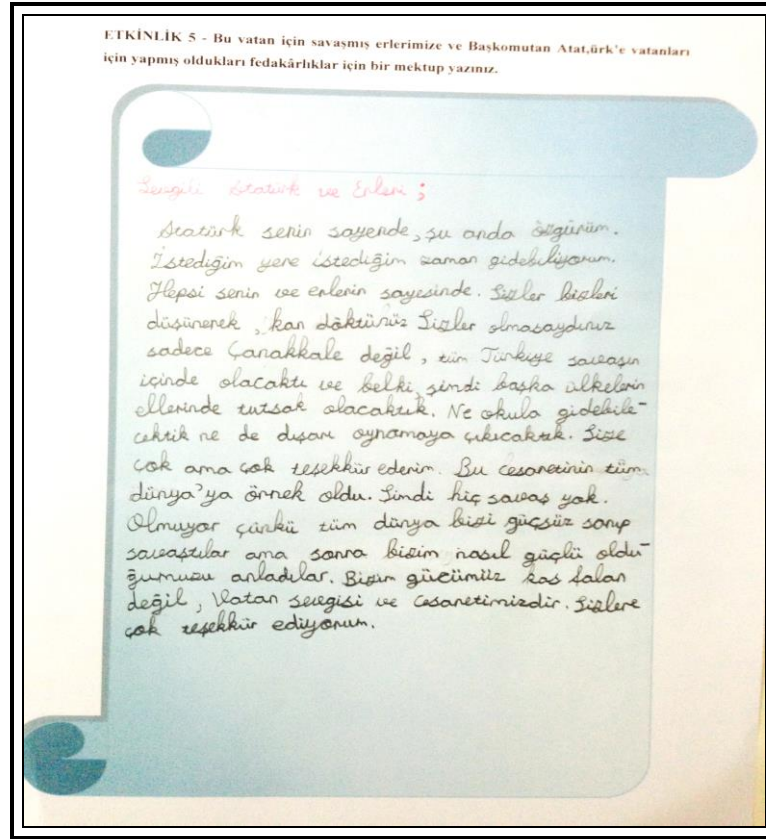 ETKİNLİK 5 - Bu vatan için savaşmış erlerimize ve Başkomutan Atat,ürk'e vatanları
için yapmış oldukları fedakârlıklar için bir mektup yazınız.
Sevgili Atatürk ve Erleri ;
Atatürk senin sayende, şu anda özgürüm.
İstediğim yere istediğim zaman gidebiliyorum.
Hepsi senin ve erlerin sayesinde. Sizler bizleri
düşünerek, kan döktünüz Sizler olmasaydınız
sadece Çanakkale değil, tüm Türkiye savaşın
içinde olacaktı ve belki şimdi başka ülkelerin
ellerinde tutsak olacaktık. Ne okula gidebile-
cektik ne de dışarı oynamaya çıkıcaktık. Size
çok ama çok teşekkür ederim. Bu cesaretinin tüm
dünya'ya örnek oldu. Şimdi hiç savaş yok.
Olmuyor çünkü tüm dünya bizi güçsüz sanıp
savaştılar ama sonra bizim nasıl güçlü oldu-
ğumuzu anladılar. Bizim gücümüz kas falan
değil, Vatan sevgisi ve cesaretimizdir. Sizlere
çok teşekkür ediyorum.